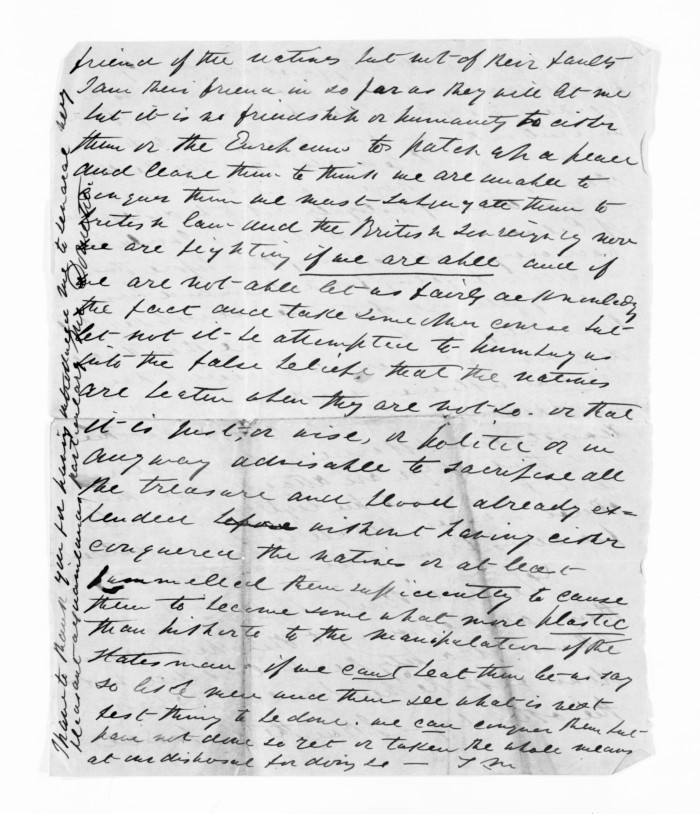 friend of the natives but not of their faults
I am their friend in so far as they will let me
but it is no friendship or humanity to either
them or the Europeans to patch up a peace
and leave them to think we are unable to
conquer them we must subjugate them to
British law and the British sovereignty now
we are fighting if we are able and if
we are not able let us fairly acknowledge
the fact and take some other course but
let not it be attempted to humbug us
into the false belief that the natives
are beaten when they are not so. or that
it is just, or wise, or politic or in
anyway advisable to sacrifise all
the treasure and blood already ex=
pended before without having either
conquered the natives or at least
pummelled them sufficiently to cause
them to become some what more plastic
than hitherto to the manipulation of the
Statesman - if we cant beat them let us say
so like men and then see what is next
best thing to be done. we can conquer them but
have not done so yet or taken the whole means
at our disposal for doing so —
I have to thank you for having introduced me to several very
pleasant acquaintances particularly